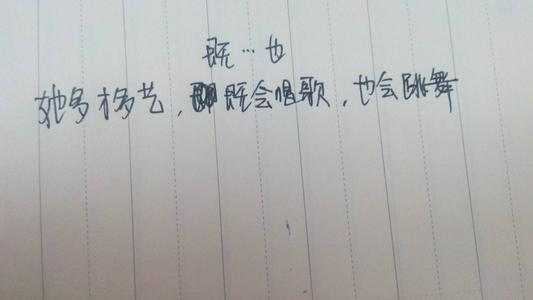 既…也
她多才多艺，既会唱歌，也会跳舞